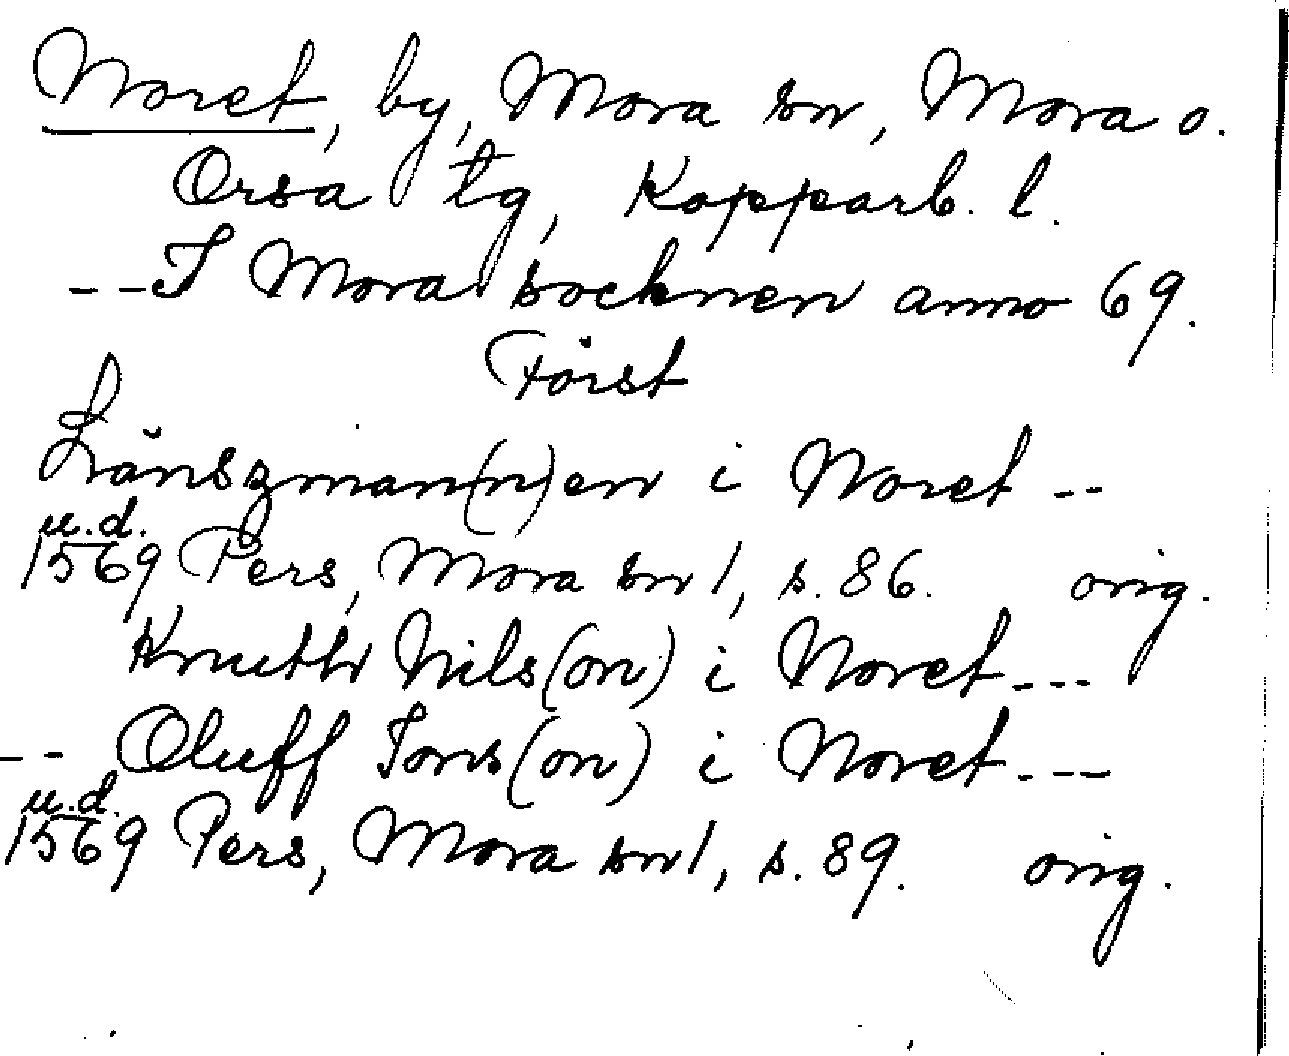 Noret, by, Mora sn, Mora o.
Orsa tg, Kopparb. l.
--I Mora socknen anno 69.
Först
Länszman(n)en i Noret --
u.d.
1569 Pers, Mora sn 1, s. 86. orig.
Knuth Nils(on) i Noret ---
-- Oluff Jons(on) i Noret ---
u.d.
1569 Pers, Mora sn 1, s. 89. orig.